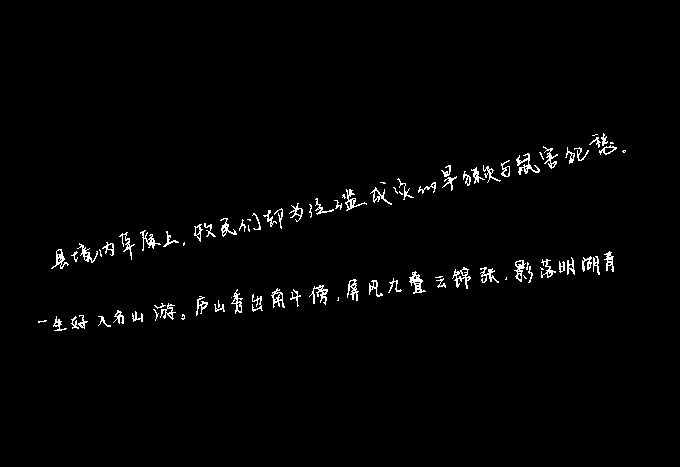 县境内草原上，牧民们却为泛滥成灾的旱獭与鼠害犯愁。
一生好入名山游。庐山秀出南斗傍，屏风九叠云锦张，影落明湖青